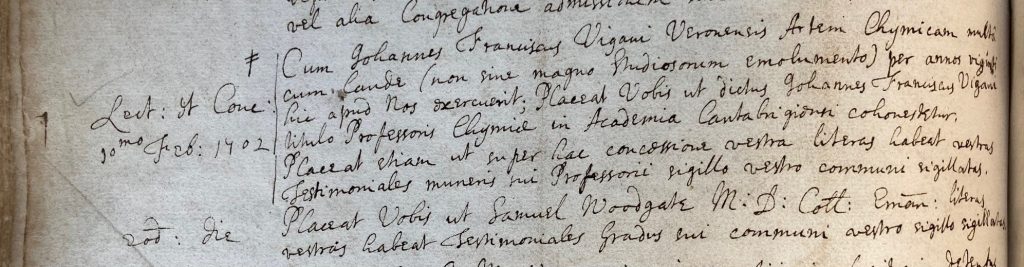 vel alia Congregatione admissionem
‡ Cum Johannes Franciscus Vigani Veronensis Artem Chymicam multâ
cum Laude (non sine magno Studiosorum emolumento) per annos viginti
Lect: et Conc: hic apud Nos exercuerit; Placeat Vobis ut dictus Johannes Franciscus Vigani
10mo Feb: 1702 titulo Professoris Chymiæ in Academia Cantabrigiensi cohonestetur.
Placeat etiam ut super hac concessione vestra literas habeat vestras
Testimoniales muneris sui Professorii sigillo vestro communi sigillatas.
eod: die Placeat Vobis ut Samuel Woodgate M: D: Coll: Eman: literas
vestras habeat Testimoniales Gradus sui communi vestro sigillo sigillatas